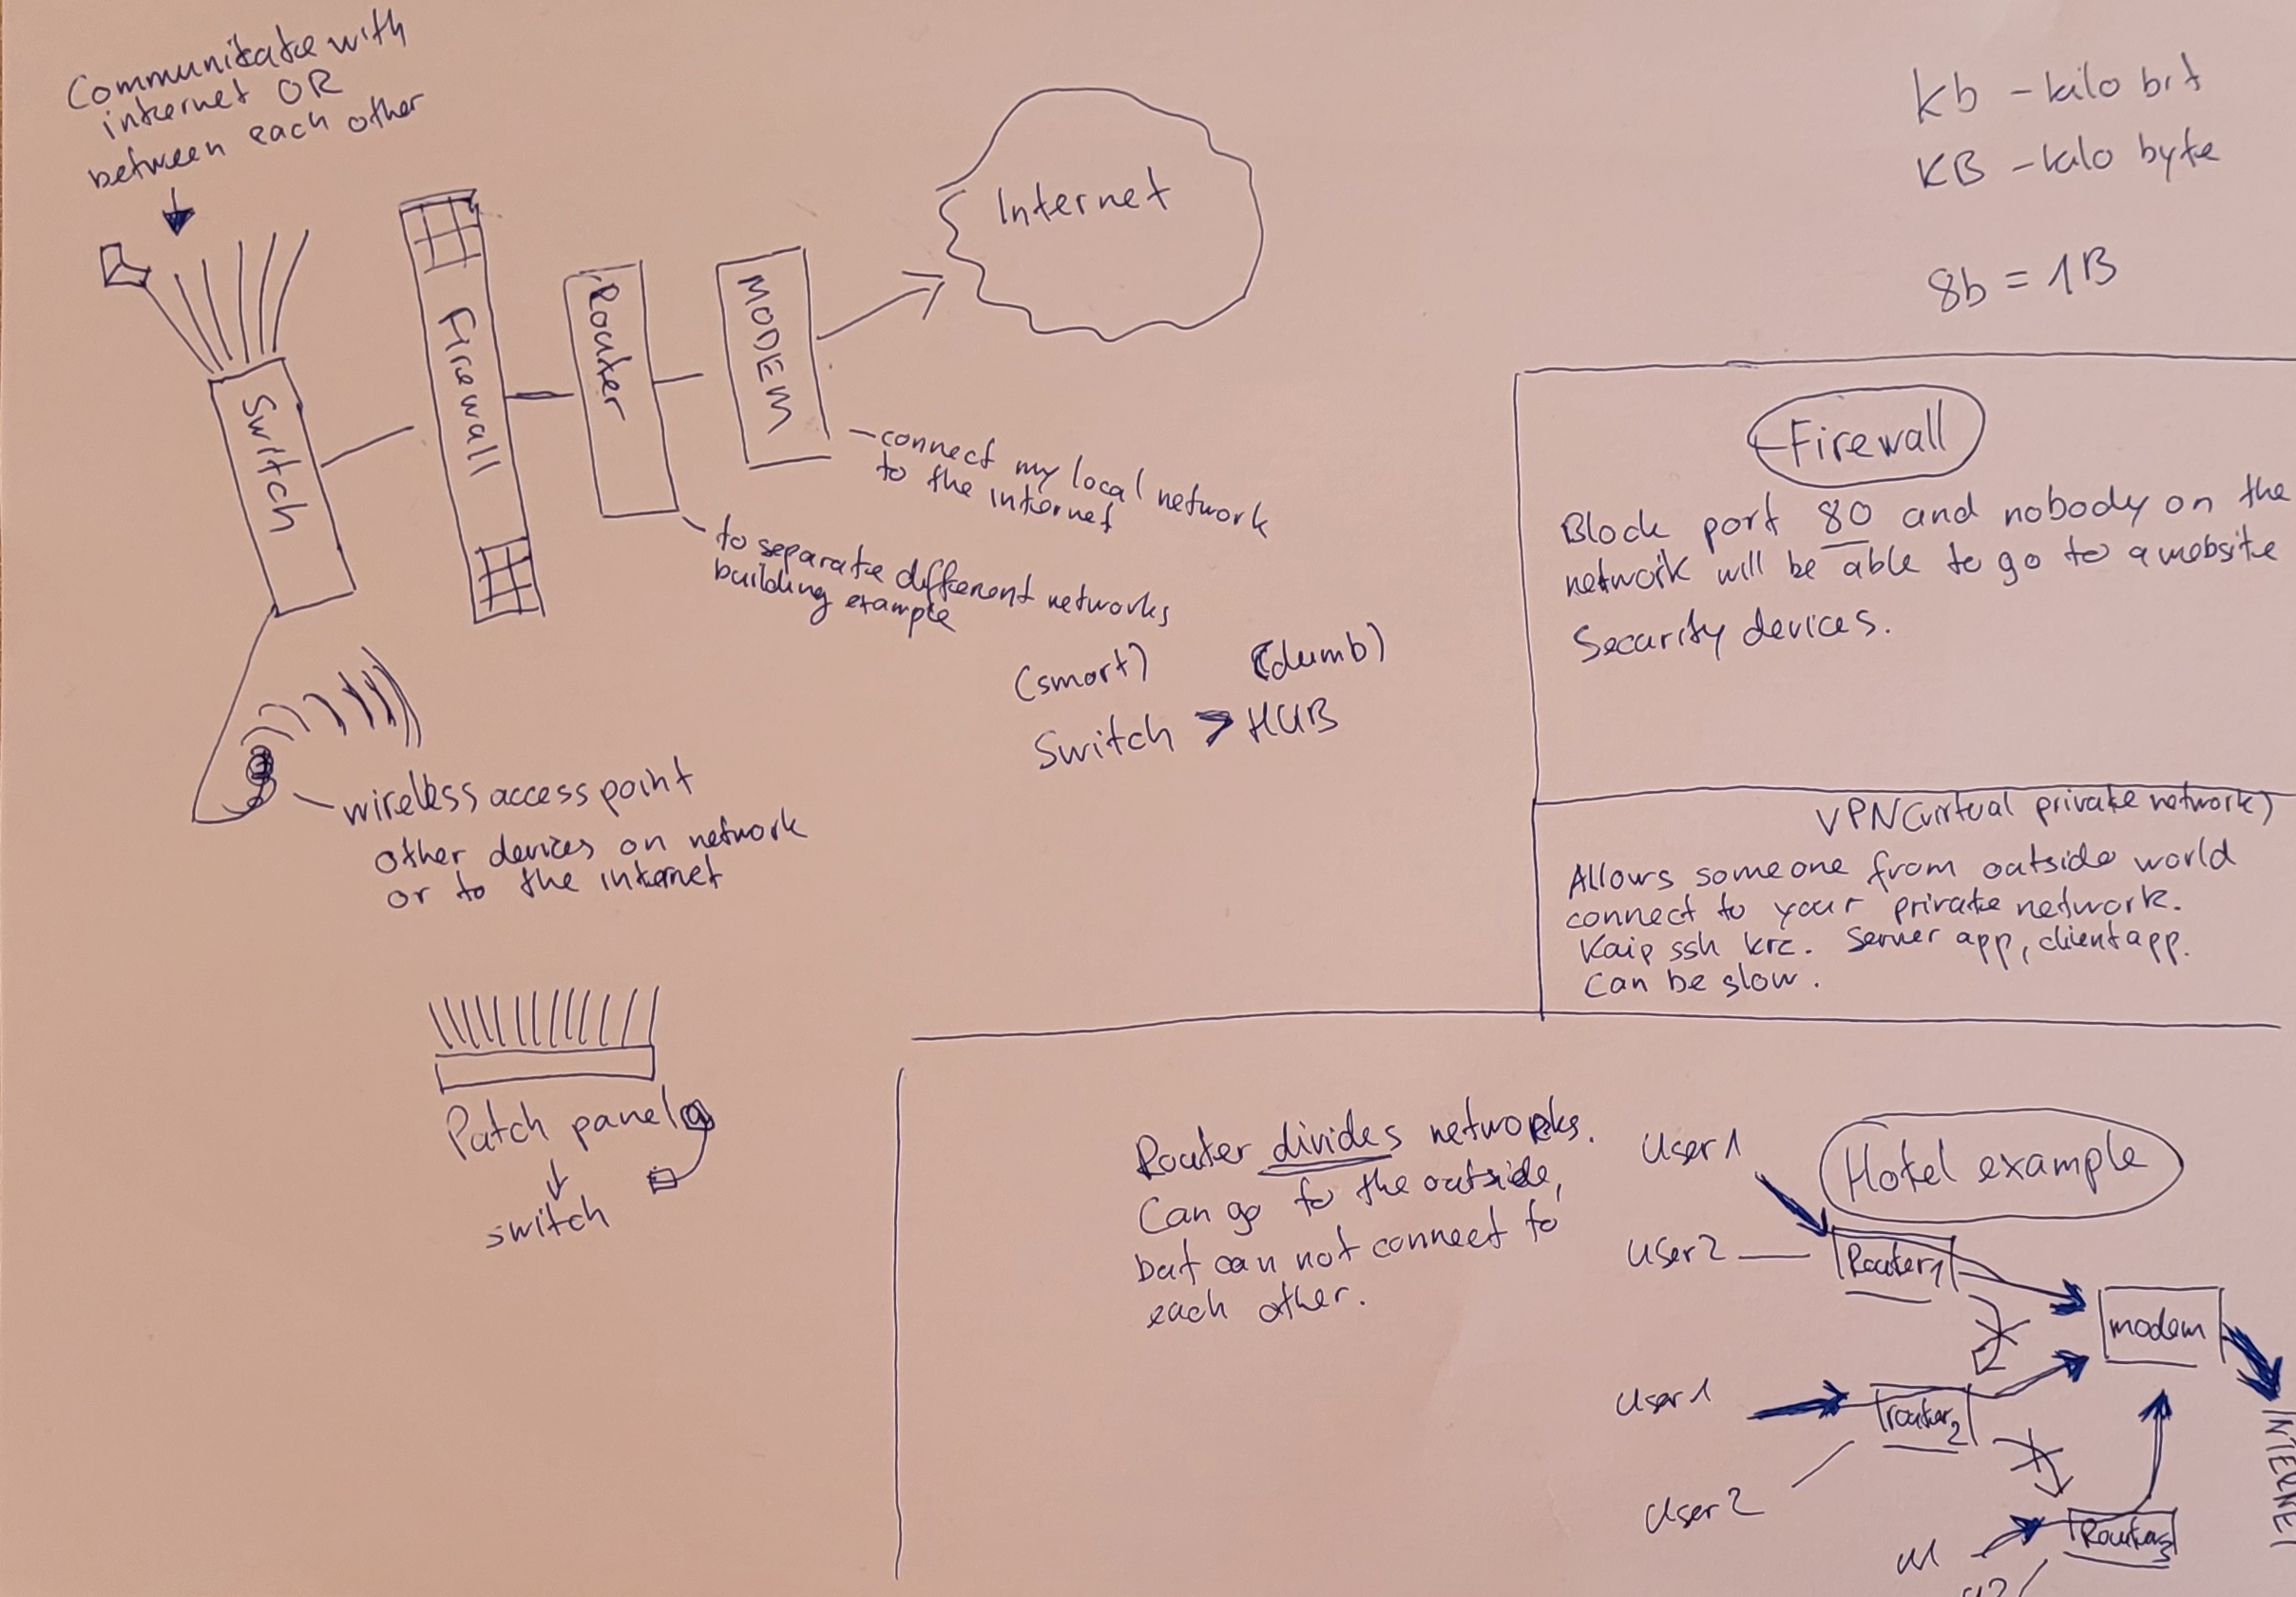 Communikate with
internet OR
between each other
Switch
Firewall
Router
MODEM
Internet
-connect my local network
to the internet
to separate different networks
building example
(smart) (dumb)
Switch > HUB
-wireless access point
other devices on network
or to the internet
Patch panel
switch
kb - kilo bit
KB - kilo byte
8b = 1B
Firewall
Block port 80 and nobody on the
network will be able to go to a website
Security devices.
VPN (virtual private network)
Allows someone from outside world
connect to your private network.
Kaip ssh krc. Server app, client app.
Can be slow.
Router divides networks.
Can go to the outside,
but can not connect to
each other.
Hotel example
User 1
User 2
Router 1
modem
User 1
router 2
User 2
U1
Router 3
INTERNET